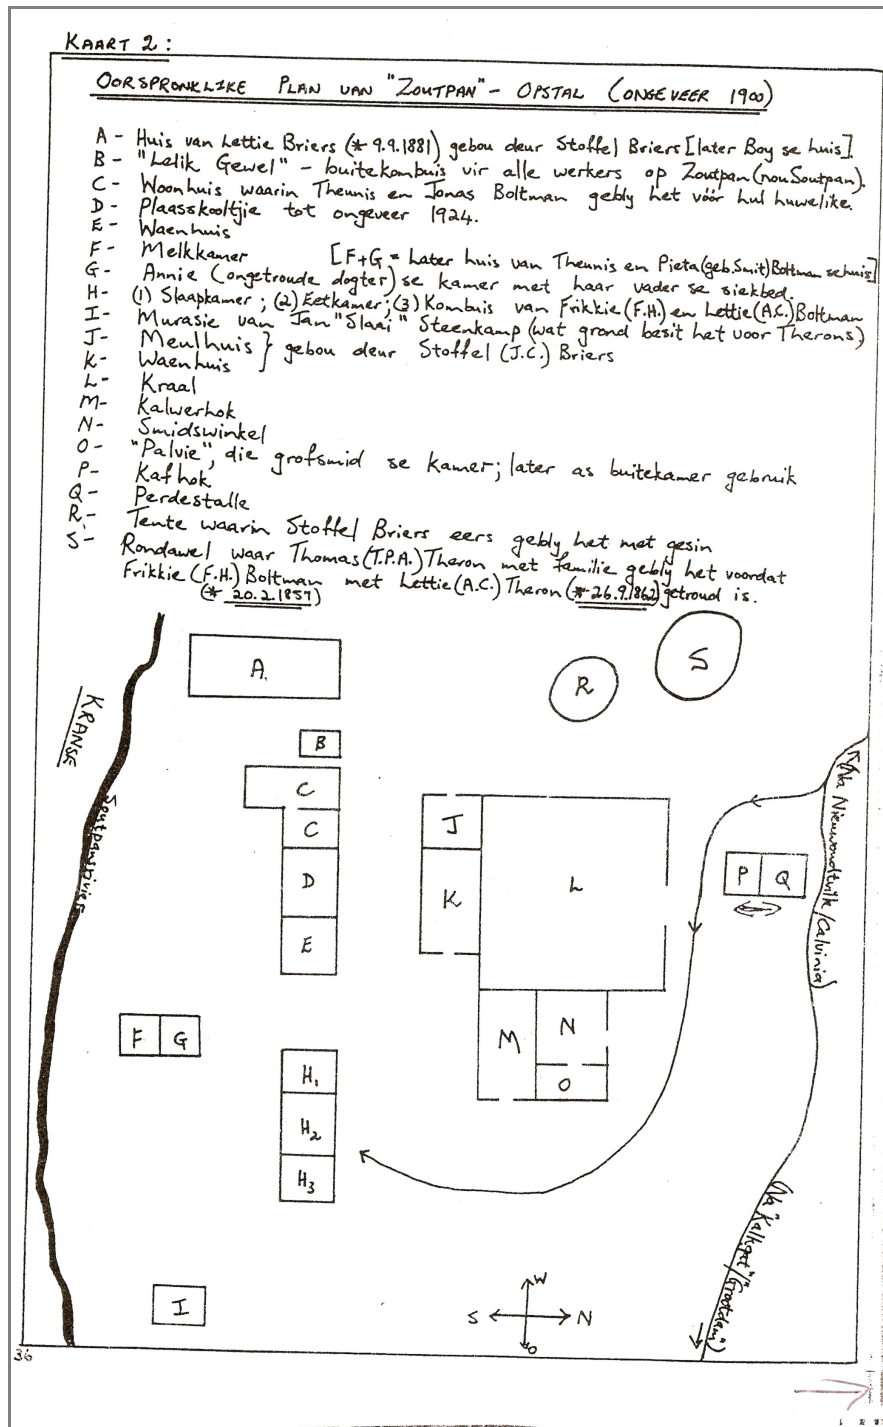 KAART 2:
OORSPRONKLIKE PLAN VAN "ZOUTPAN" - OPSTAL (ONGEVEER 1900)
A - Huis van Lettie Briers (* 9.9.1881) gebou deur Stoffel Briers [later Boy se huis].
B - "Lelik Gewel" - buitekombuis vir alle werkers op Zoutpan (nou Soutpan).
C - Woonhuis waarin Theunis en Jonas Boltman gebly het vóór hul huwelike.
D - Plaasskooltjie tot ongeveer 1924.
E - Waenhuis
F - Melkkamer [F+G = Later huis van Theunis en Pieta (geb. Smit) Boltman se huis]
G - Annie (ongetroude dogter) se kamer met haar vader se siekbed.
H - (1) Slaapkamer; (2) Eetkamer; (3) Kombuis van Frikkie (F.H.) en Lettie (A.C.) Boltman
I - Murasie van Jan "Slaai" Steenkamp (wat grond besit het voor Therons)
J - Meulhuis } gebou deur Stoffel (J.C.) Briers
K - Waenhuis
L - Kraal
M - Kalwerhok
N - Smidswinkel
O - "Palvie", die grofsmid se kamer; later as buitekamer gebruik
P - Kafhok
Q - Perdestalle
R - Tente waarin Stoffel Briers eers gebly het met gesin
S - Rondawel waar Thomas (T.P.A.) Theron met familie gebly het voordat
Frikkie (F.H.) Boltman met Lettie (A.C.) Theron (* 26.9.1862) getroud is.
(* 20.2.1857)
A.
R
S
KRANSE
B
C
C
J
L
P
Q
(Na Nieuwoudtville/Calvinia)
Soutpansrivier
D
K
E
F
G
M
N
O
H1
H2
H3
(Na "Kalkgat"/"Grootdam")
I
W
S
N
O
36